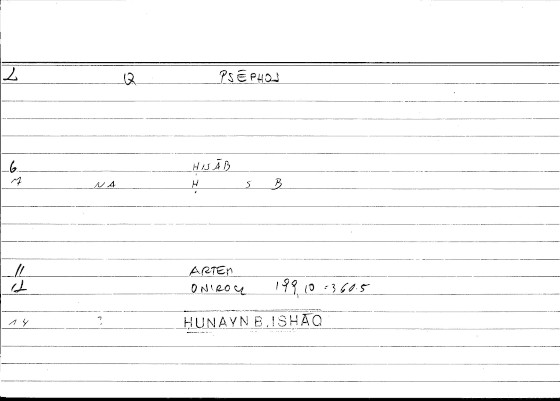 1 12 PSĒPHOS
6 ḤISĀB
7 NA Ḥ S B
11 ARTEM
12 ONIROCR 199,10 = 360.5
14 ? HUNAYN B. ISḤĀQ